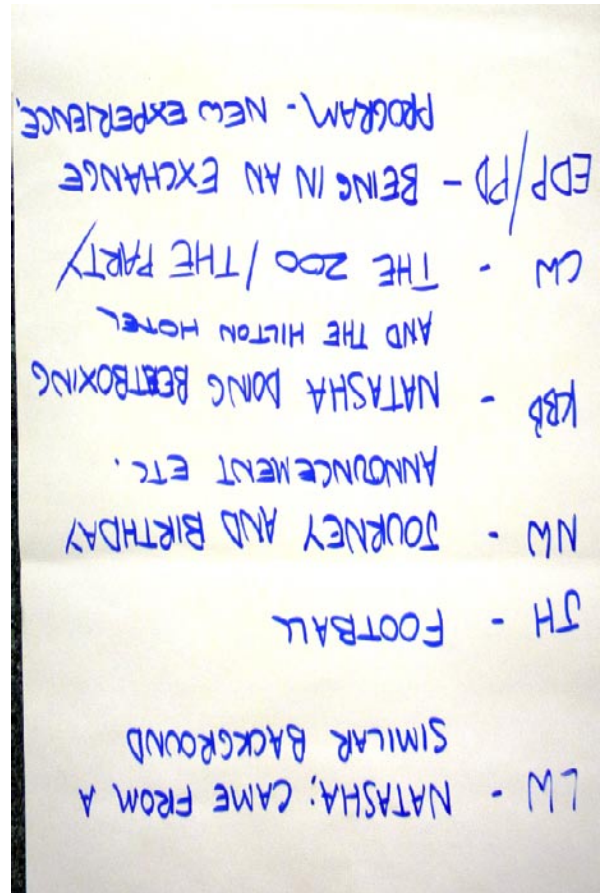 LW - NATASHA; CAME FROM A
SIMILAR BACKGROUND
JH - FOOTBALL
NW - JOURNEY AND BIRTHDAY
ANNOUNCEMENT ETC.
KBB - NATASHA DOING BEATBOXING
AND THE HILTON HOTEL
CW - THE ZOO / THE PARTY
EDP/PD - BEING IN AN EXCHANGE
PROGRAM - NEW EXPERIENCE.